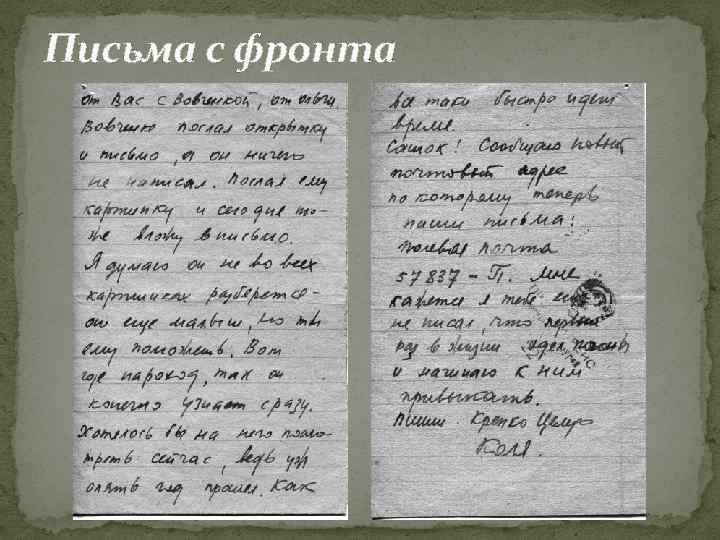 Письма с фронта
от Вас с Вовченкой, от
Вовченке послал открытку
и письмо, а он ничего
не написал. Послал ему
картинку и сегодня то-
же вложу в письмо.
Я думаю он не во всех
картинках разберется -
он еще малыш, но ты
ему поможешь. Вот
где пароход, так он
конечно узнает сразу.
Хотелось бы на него посмо-
треть сейчас, ведь уж
опять год прошел. Как
все таки быстро идет
время.
Сашок! Сообщаю новый
почтовый адрес
по которому теперь
пиши письма:
Полевая почта
57837 - П. Мне
кажется я тебе еще
не писал, что первый
раз в жизни одел
и начинаю к ним
привыкать.
Пиши. Крепко Целую
Коля.